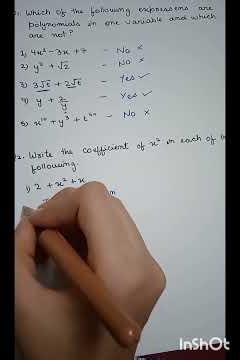 Which of the following expressions are
polynomials in one variable and which
are not?
1) 4x² - 3x + 7 - No ×
2) y² + √2 - No ×
3) 3√t + 2√t - Yes ✓
4) y + 2/y - Yes ✓
5) x¹⁰ + y³ + t⁵⁰ - No ×
2. Write the coefficient of x² in each of the
following.
1) 2 + x² + x
InShOt